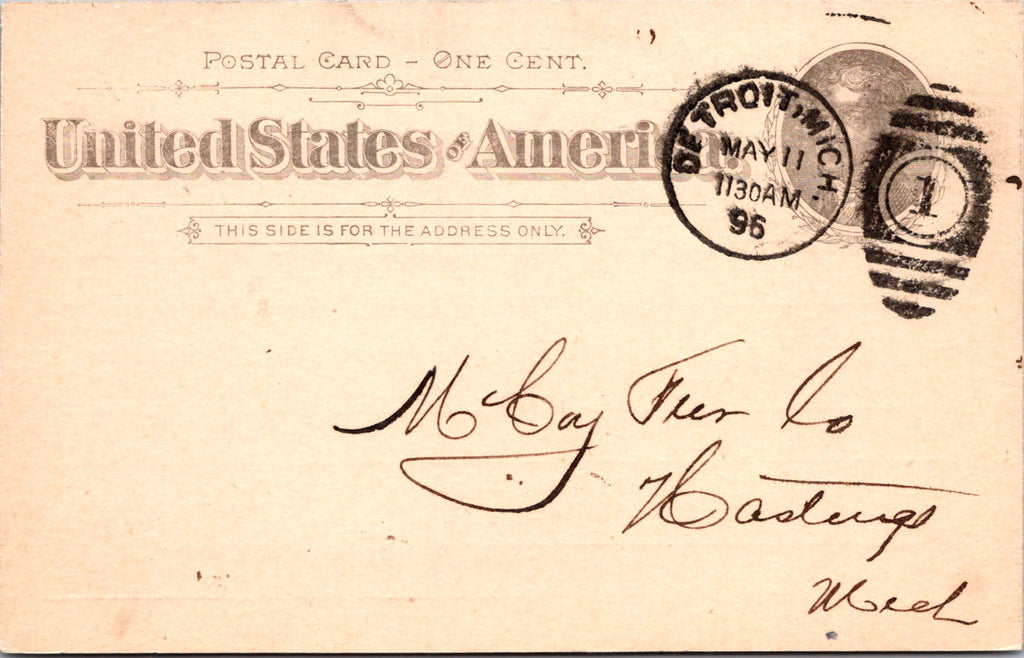 POSTAL CARD - ONE CENT.
United States OF America.
THIS SIDE IS FOR THE ADDRESS ONLY.
DETROIT, MICH.
MAY 11
1130AM
96
1
McCoy Furn Co
Hastings
Mich